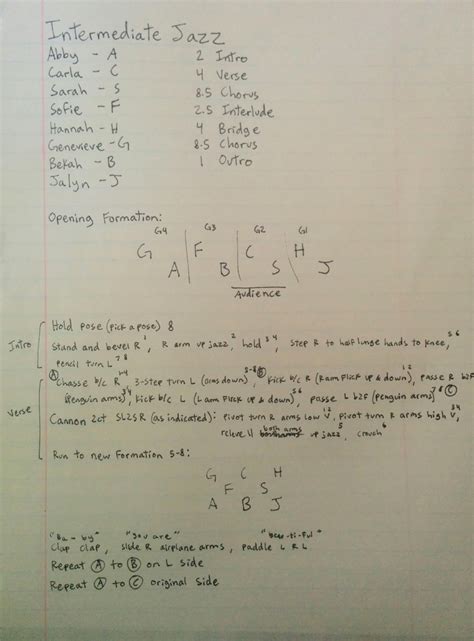 Intermediate Jazz
Abby - A 2 Intro
Carla - C 4 Verse
Sarah - S 8.5 Chorus
Sofie - F 2.5 Interlude
Hannah - H 4 Bridge
Genevieve - G 8.5 Chorus
Bekah - B 1 Outro
Jalyn - J
Opening Formation:
G4 G3 G2 G1
G F C H
A B S J
Audience
Intro
Hold pose (pick a pose) 8
Stand and bevel R 1, R arm up jazz 2, hold 3 4, step R to half lunge hands to knee, 5 6
pencil turn L 7 8
Verse
A Chasse b/c R 1-4, 3-step turn L (arms down) 5-8 B, Kick b/c R (R arm flick up & down), 1 2 passe R b2F
(penguin arms) 3 4, kick b/c L (L arm flick up & down) 5 6, passe L b2F (penguin arms) 7 8 C
Cannon 2ct SL2SR (as indicated): pivot turn R arms low V, 1 2 pivot turn R arms high V, 3 4
releve II both arms up jazz 5, crouch 6
Run to new Formation 5-8:
G C H
F S
A B J
"Ba - by" "you are" "beau-ti-ful"
Clap clap, slide R airplane arms, paddle L R L
Repeat A to B on L side
Repeat A to C original side